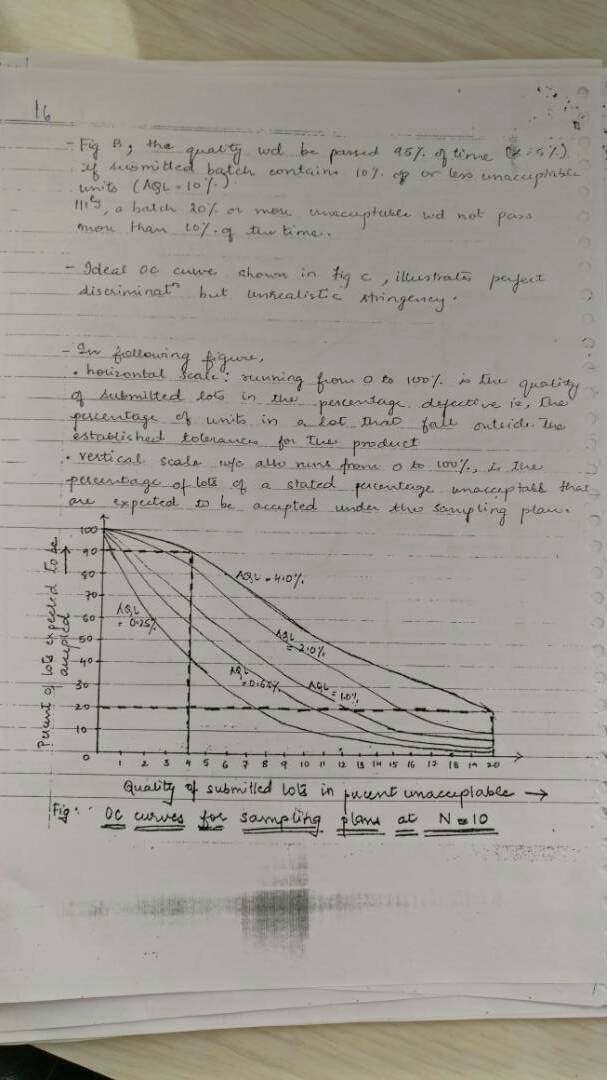 16
- Fig B; the quality wd be passed 95% of time (α = 5%)
if submitted batch contains 10% of or less unacceptable
units (AQL = 10%).
|||ly, a batch 20% or more unacceptable wd not pass
more than 10% of the time..
- Ideal OC curve shown in fig C, illustrates perfect
discriminatn but unrealistic stringency.
- In following figure,
• horizontal scale: running from 0 to 100% is the quality
of submitted lots in the percentage defective ie, the
percentage of units in a lot that fall outside the
established tolerances for the product
• vertical scale w/c also runs from 0 to 100%, is the
percentage of lots of a stated percentage unacceptable that
are expected to be accepted under the sampling plan.
Percent of lots expected to be
accepted
100
90
80
70
60
50
40
30
20
10
0
AQL = 4.0%
AQL
= 0.25%
AQL
= 2.0%
AQL
= 0.65%
AQL
= 1.0%
1 2 3 4 5 6 7 8 9 10 11 12 13 14 15 16 17 18 19 20
Quality of submitted lots in percent unacceptable →
Fig: OC curves for sampling plans at N = 10